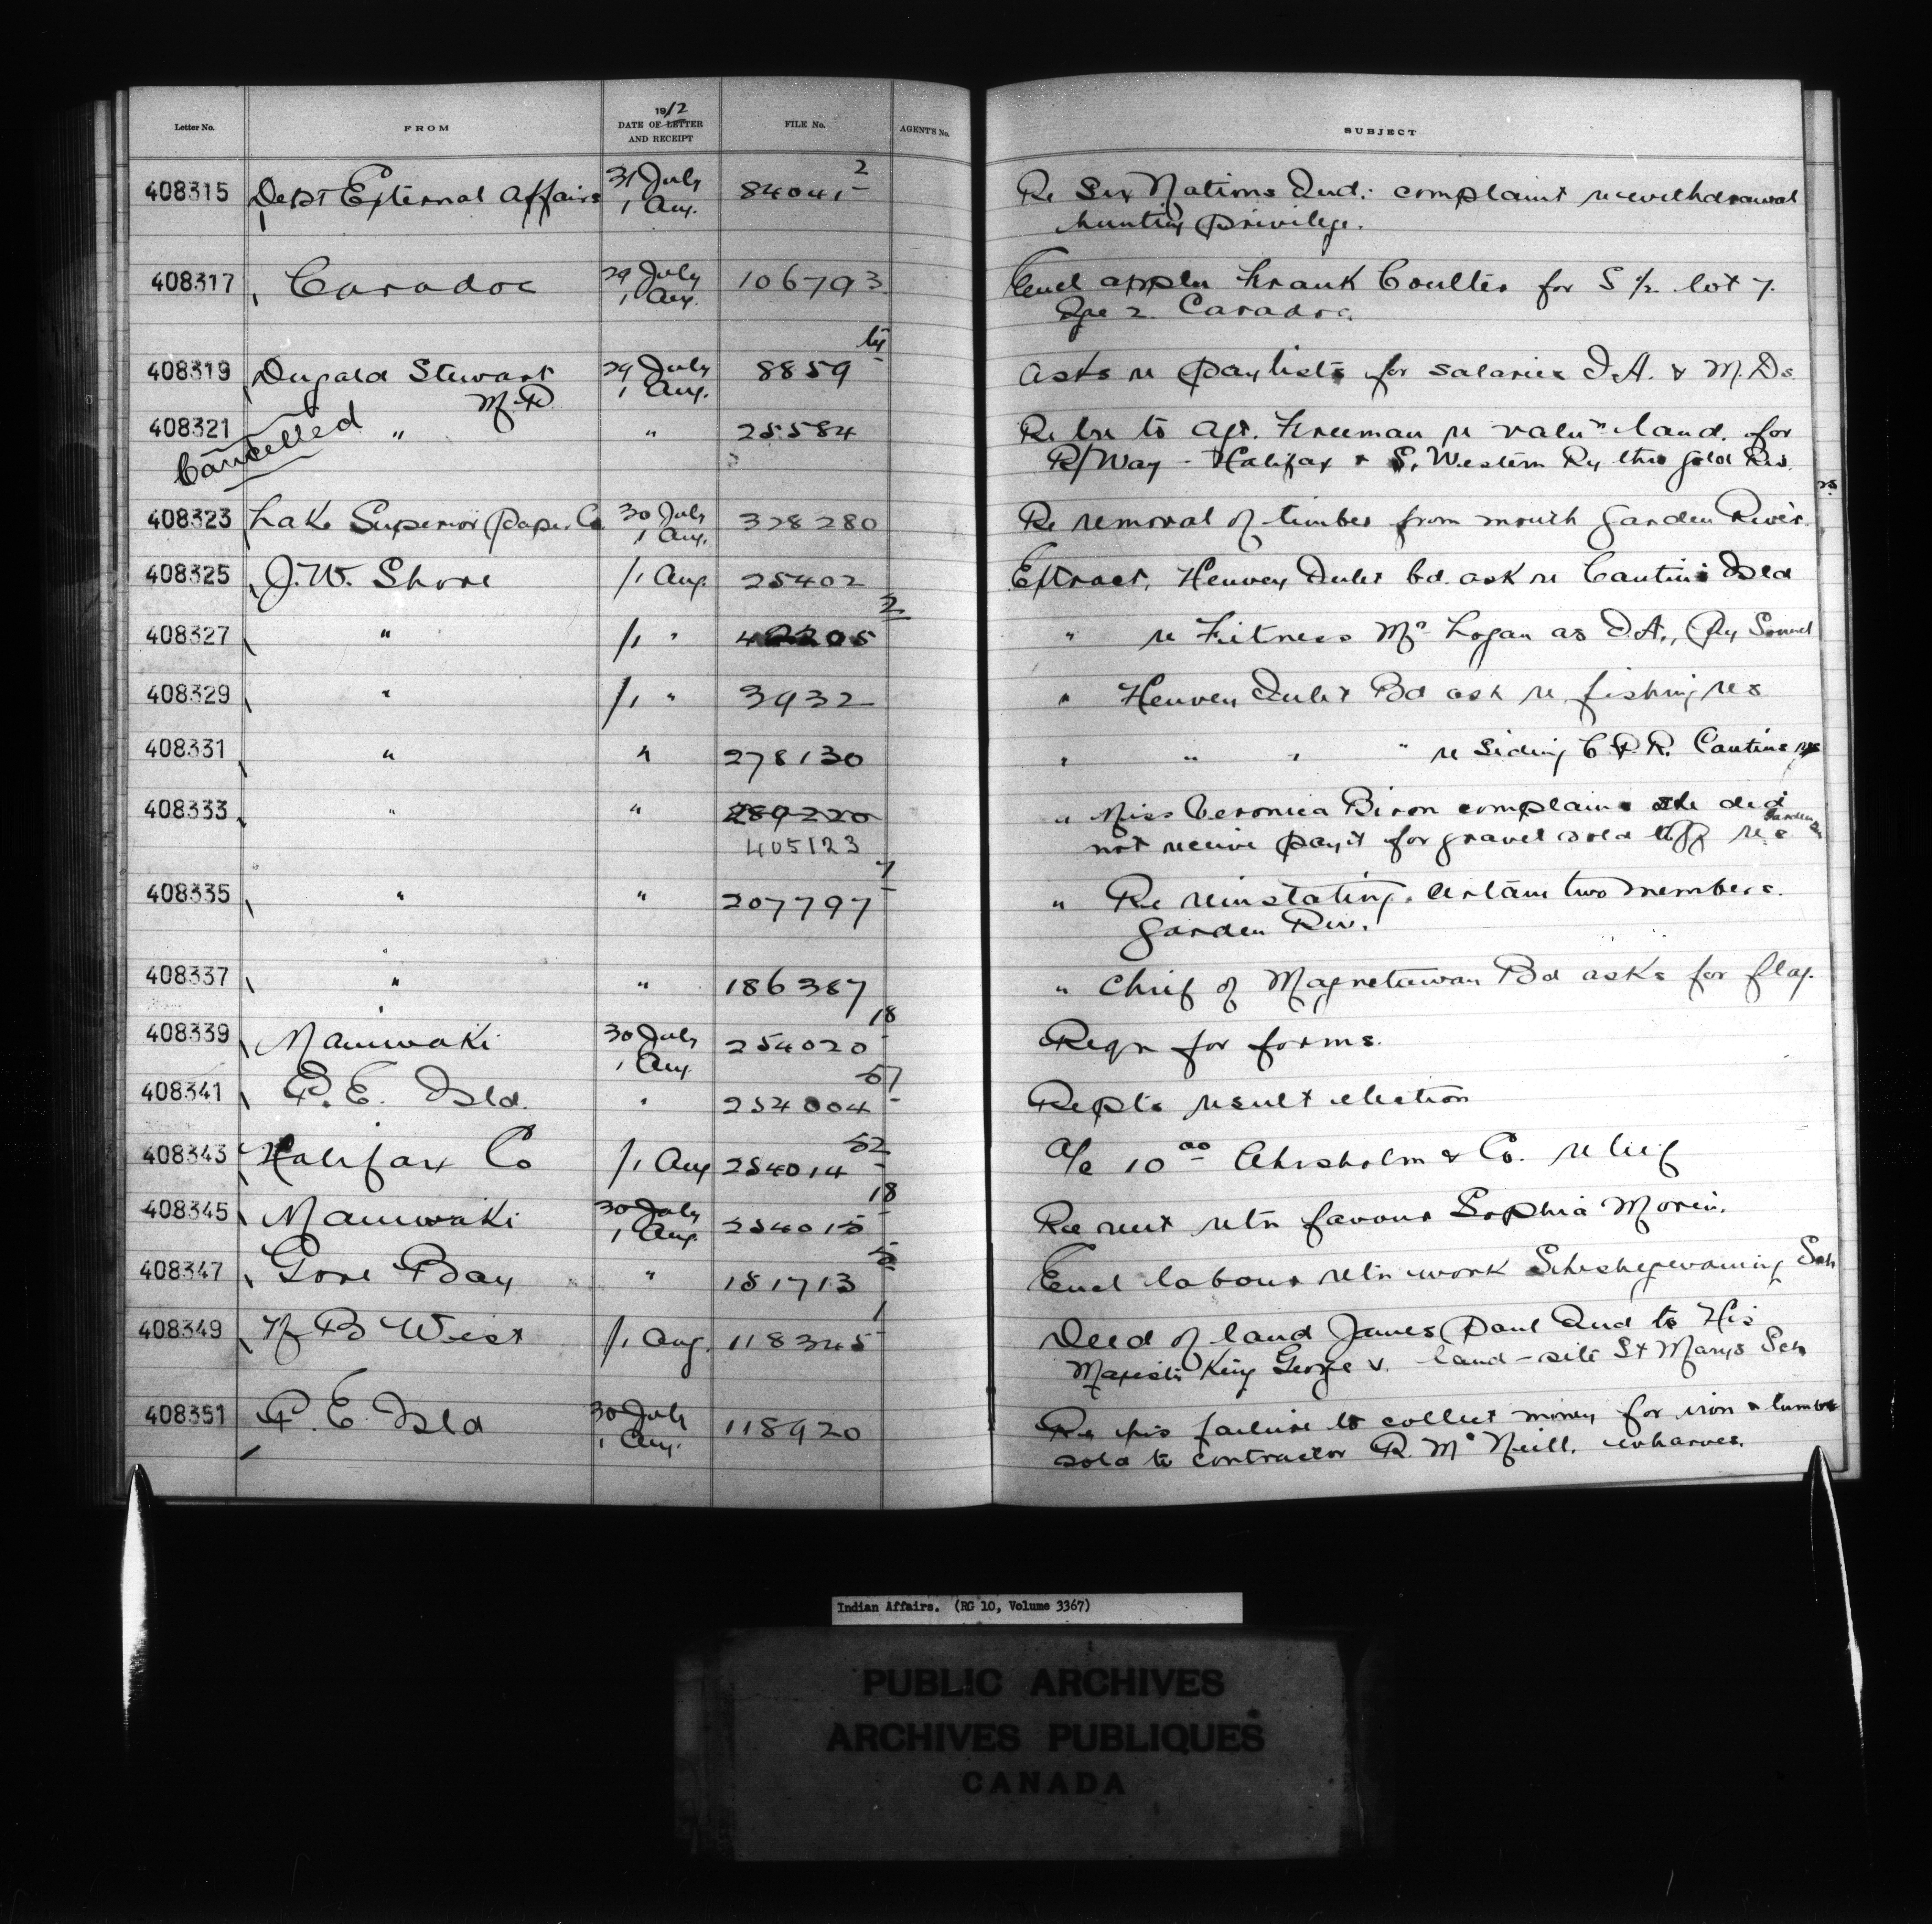 Letter No. FROM 1912 DATE OF LETTER AND RECEIPT FILE No. AGENT'S No. SUBJECT
408315 Dept External Affairs 31 July 1 Aug. 84041-2 Re Six Nations Ind: complaint re withdrawal
hunting privilege.
408317 Caradoc 29 July 1 Aug. 106793 Encl appln Frank Coulter for S ½ lot 7.
Rge 2. Caradoc
408319 Dugald Stewart 29 July 1 Aug. 8859 Asks re paylists for salaries I.A. & M.Ds.
M.P.
408321 " " 25584 Re lre to Agt. Freeman re valun land for
Cancelled R/Way - Halifax & S. Western Ry thro Gold Riv.
408323 Lake Superior Paper Co 30 July 1 Aug. 328280 Re removal of timber from mouth Garden River.
408325 J.W. Shore /1 Aug. 25402 Extract, Henvey Inlet bd. ask re Cantin's Isld
408327 " /1 " 2 " re Fitness Mr Logan as I.A., Pry Sound
408329 " /1 " 3932 " Henvey Inlet Bd ask re fishing res
408331 " " 278130 " " " " re Siding C.P.R. Cantins res
408333 " " 289220 " Miss Veronica Biron complains she did
405123 not receive paymt for gravel sold off res Garden Riv
408335 " " 207797-7 " Re reinstating certain two members.
Garden Riv.
408337 " " 186387 " Chief of Magnetawan Bd asks for flag.
408339 Maniwaki 30 July 1 Aug. 254020-18 Reqn for forms.
408341 P.E. Isld. " 254004-57 Repts result election
408343 Halifax Co /1 Aug 254014-52 a/c 10 00 Chisholm & Co. relief
408345 Maniwaki 30 July 1 Aug. 254015-18 Re rent retn favour Sophia Morin.
408347 Gore Bay " 181713-5 Encl labour retn work Sheshegwaning Sch
408349 N B West /1 Aug. 118345-1 Deed of land James Paul Ind to His
Majesty King George V. land-site St Marys Sch
408351 P.E. Isld 30 July 1 Aug. 118920 Re his failure to collect money for iron & lumber
sold to contractor R. McNeill. wharves.
Indian Affairs. (RG 10, Volume 3367)
PUBLIC ARCHIVES
ARCHIVES PUBLIQUES
CANADA